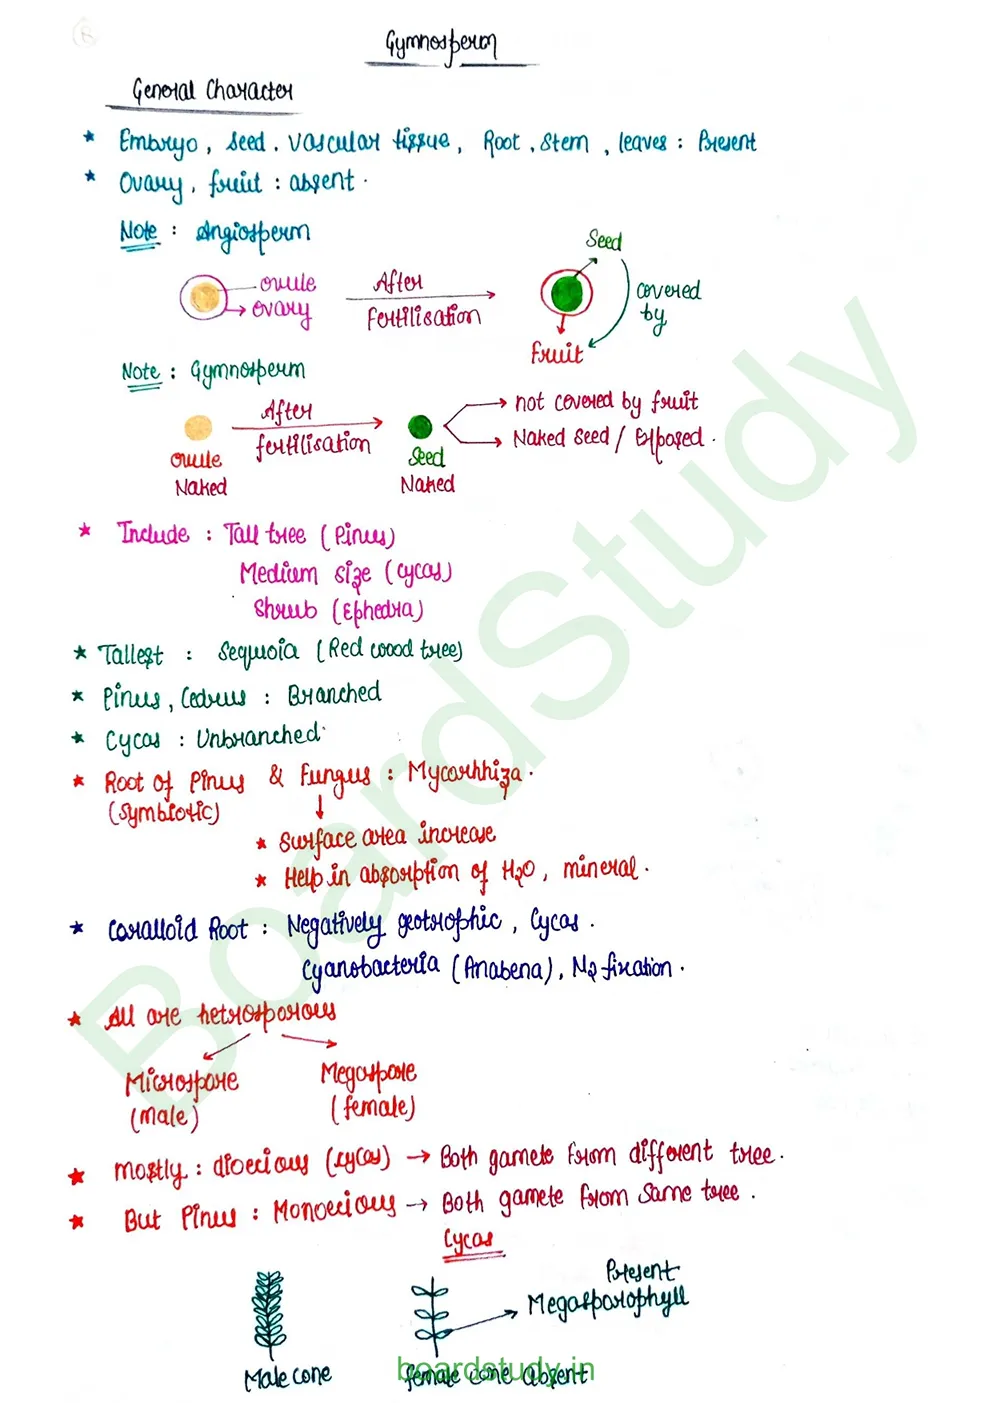 Gymnosperm
General Character
* Embryo, seed, vascular tissue, Root, Stem, leaves : Present
* Ovary, fruit : absent.
Note : Angiosperm
ovule
ovary
After
fertilisation
Seed
covered
by
Fruit
Note : Gymnosperm
ovule
Naked
After
fertilisation
Seed
Naked
not covered by fruit
Naked Seed / Exposed.
* Include : Tall tree (Pinus)
Medium size (cycas)
Shrub (Ephedra)
* Tallest : Sequoia (Red wood tree)
* Pinus, Cedrus : Branched
* Cycas : Unbranched
* Root of Pinus & Fungus : Mycorhhiza.
(Symbiotic)
* Surface area increase
* Help in absorption of H2O, mineral.
* Coralloid Root : Negatively geotrophic, Cycas.
Cyanobacteria (Anabena), N2 fixation.
* All are hetrosporous
Microspore
(male)
Megaspore
(female)
* Mostly : dioecious (cycas) → Both gamete from different tree.
* But Pinus : Monoecious → Both gamete from same tree.
Cycas
Male cone
Present
Megasporophyll
female cone absent
BoardStudy
boardstudy.in